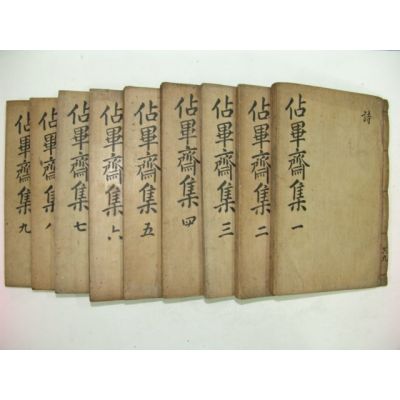 詩
佔畢齋集 一
共九
佔畢齋集 二
佔畢齋集 三
佔畢齋集 四
佔畢齋集 五
佔畢齋集 六
佔畢齋集 七
佔畢齋集 八
佔畢齋集 九